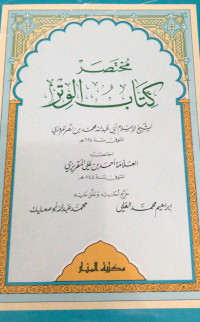 مختصر
كتاب الوتر
لشيخ الإسلام أبي عبد الله محمد بن نصر المروزي
المتوفى سنة ٢٩٤ هـ
اختصره
العلامة أحمد بن علي المقريزي
المتوفى سنة ٨٤٥ هـ
خرج أحاديثه وعلق عليه
إبراهيم محمد العلي
محمد عبد الله أبو صعيليك
مكتبة المنار